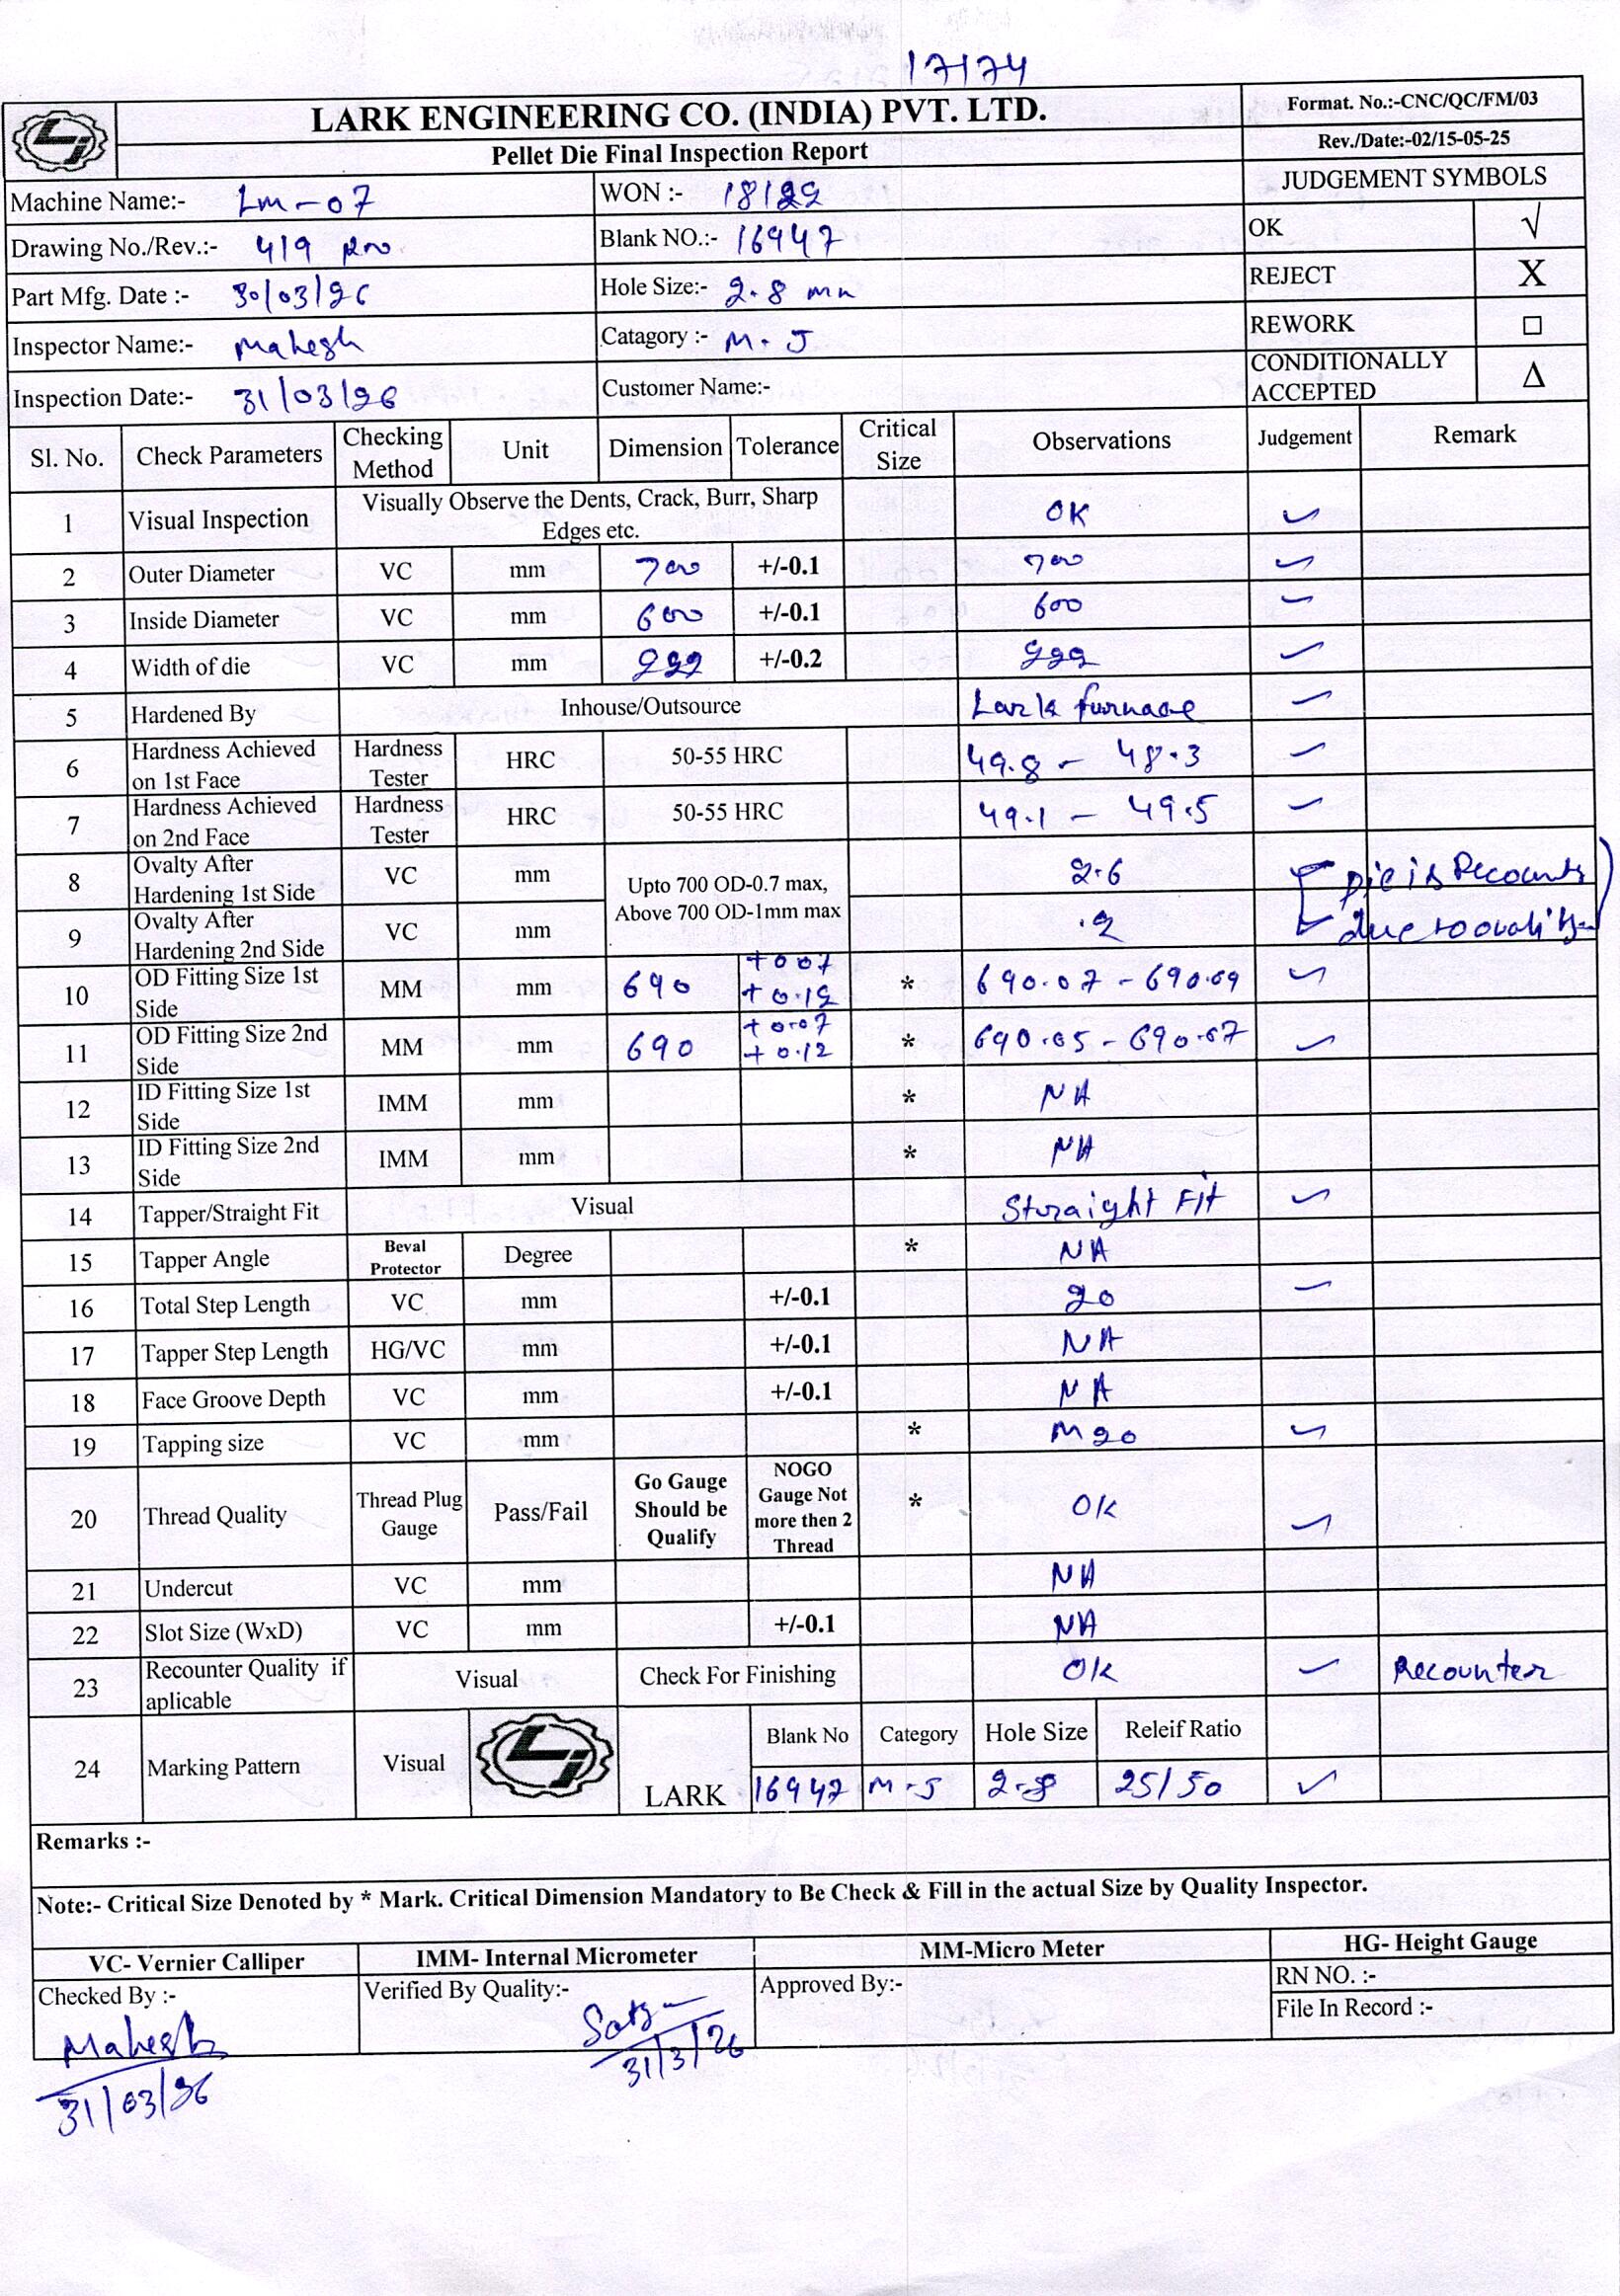 17174
LARK ENGINEERING CO. (INDIA) PVT. LTD.
Pellet Die Final Inspection Report
Format. No.:-CNC/QC/FM/03
Rev./Date:-02/15-05-25
Machine Name:- Lm-07
WON :- 18122
JUDGEMENT SYMBOLS
Drawing No./Rev.:- 419
Blank NO.:- 16947
OK √
Part Mfg. Date :- 30/03/26
Hole Size:- 2.8 mm
REJECT X
Inspector Name:- Mahesh
Catagory :- M.J
REWORK □
Inspection Date:- 31/03/26
Customer Name:-
CONDITIONALLY ACCEPTED Δ
Sl. No. Check Parameters Checking Method Unit Dimension Tolerance Critical Size Observations Judgement Remark
1 Visual Inspection Visually Observe the Dents, Crack, Burr, Sharp Edges etc. OK ✓
2 Outer Diameter VC mm 700 +/-0.1 700 ✓
3 Inside Diameter VC mm 600 +/-0.1 600 ✓
4 Width of die VC mm 222 +/-0.2 222 ✓
5 Hardened By Inhouse/Outsource Lark furnace ✓
6 Hardness Achieved on 1st Face Hardness Tester HRC 50-55 HRC 49.8 - 48.3 ✓
7 Hardness Achieved on 2nd Face Hardness Tester HRC 50-55 HRC 49.1 - 49.5 ✓
8 Ovalty After Hardening 1st Side VC mm Upto 700 OD-0.7 max, Above 700 OD-1mm max 2.6 Die is Recounts
9 Ovalty After Hardening 2nd Side VC mm .2 due to ovality
10 OD Fitting Size 1st Side MM mm 690 +0.07 +0.12 * 690.07 - 690.09 ✓
11 OD Fitting Size 2nd Side MM mm 690 +0.07 +0.12 * 690.05 - 690.07 ✓
12 ID Fitting Size 1st Side IMM mm * NA
13 ID Fitting Size 2nd Side IMM mm * NA
14 Tapper/Straight Fit Visual Straight Fit ✓
15 Tapper Angle Beval Protector Degree * NA
16 Total Step Length VC mm +/-0.1 20 ✓
17 Tapper Step Length HG/VC mm +/-0.1 NA
18 Face Groove Depth VC mm +/-0.1 NA
19 Tapping size VC mm * M20 ✓
20 Thread Quality Thread Plug Gauge Pass/Fail Go Gauge Should be Qualify NOGO Gauge Not more then 2 Thread * OK ✓
21 Undercut VC mm NA
22 Slot Size (WxD) VC mm +/-0.1 NA
23 Recounter Quality if aplicable Visual Check For Finishing OK ✓ Recounter
24 Marking Pattern Visual LARK Blank No Category Hole Size Releif Ratio
16947 M-J 2.8 25/50 ✓
Remarks :-
Note:- Critical Size Denoted by * Mark. Critical Dimension Mandatory to Be Check & Fill in the actual Size by Quality Inspector.
VC- Vernier Calliper IMM- Internal Micrometer MM-Micro Meter HG- Height Gauge
Checked By :- Verified By Quality:- Approved By:- RN NO. :-
File In Record :-
Mahesh
31/03/26
31/3/26